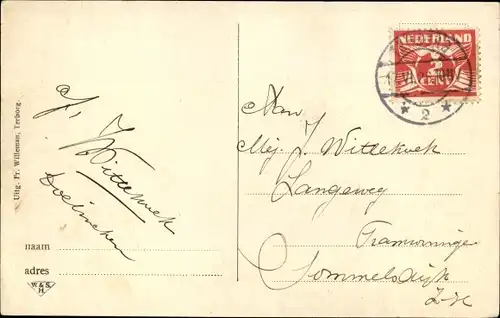 Uitg. Fr. Willemsen, Terborg.
J. Wittekoek
Doetinchem
naam
adres
W & S
H.
NEDERLAND
2
CENT
17 VI
2
Aan
Mej. J. Wittekoek
Langeweg
Tramwoninge
Sommelsdijk
Z-H